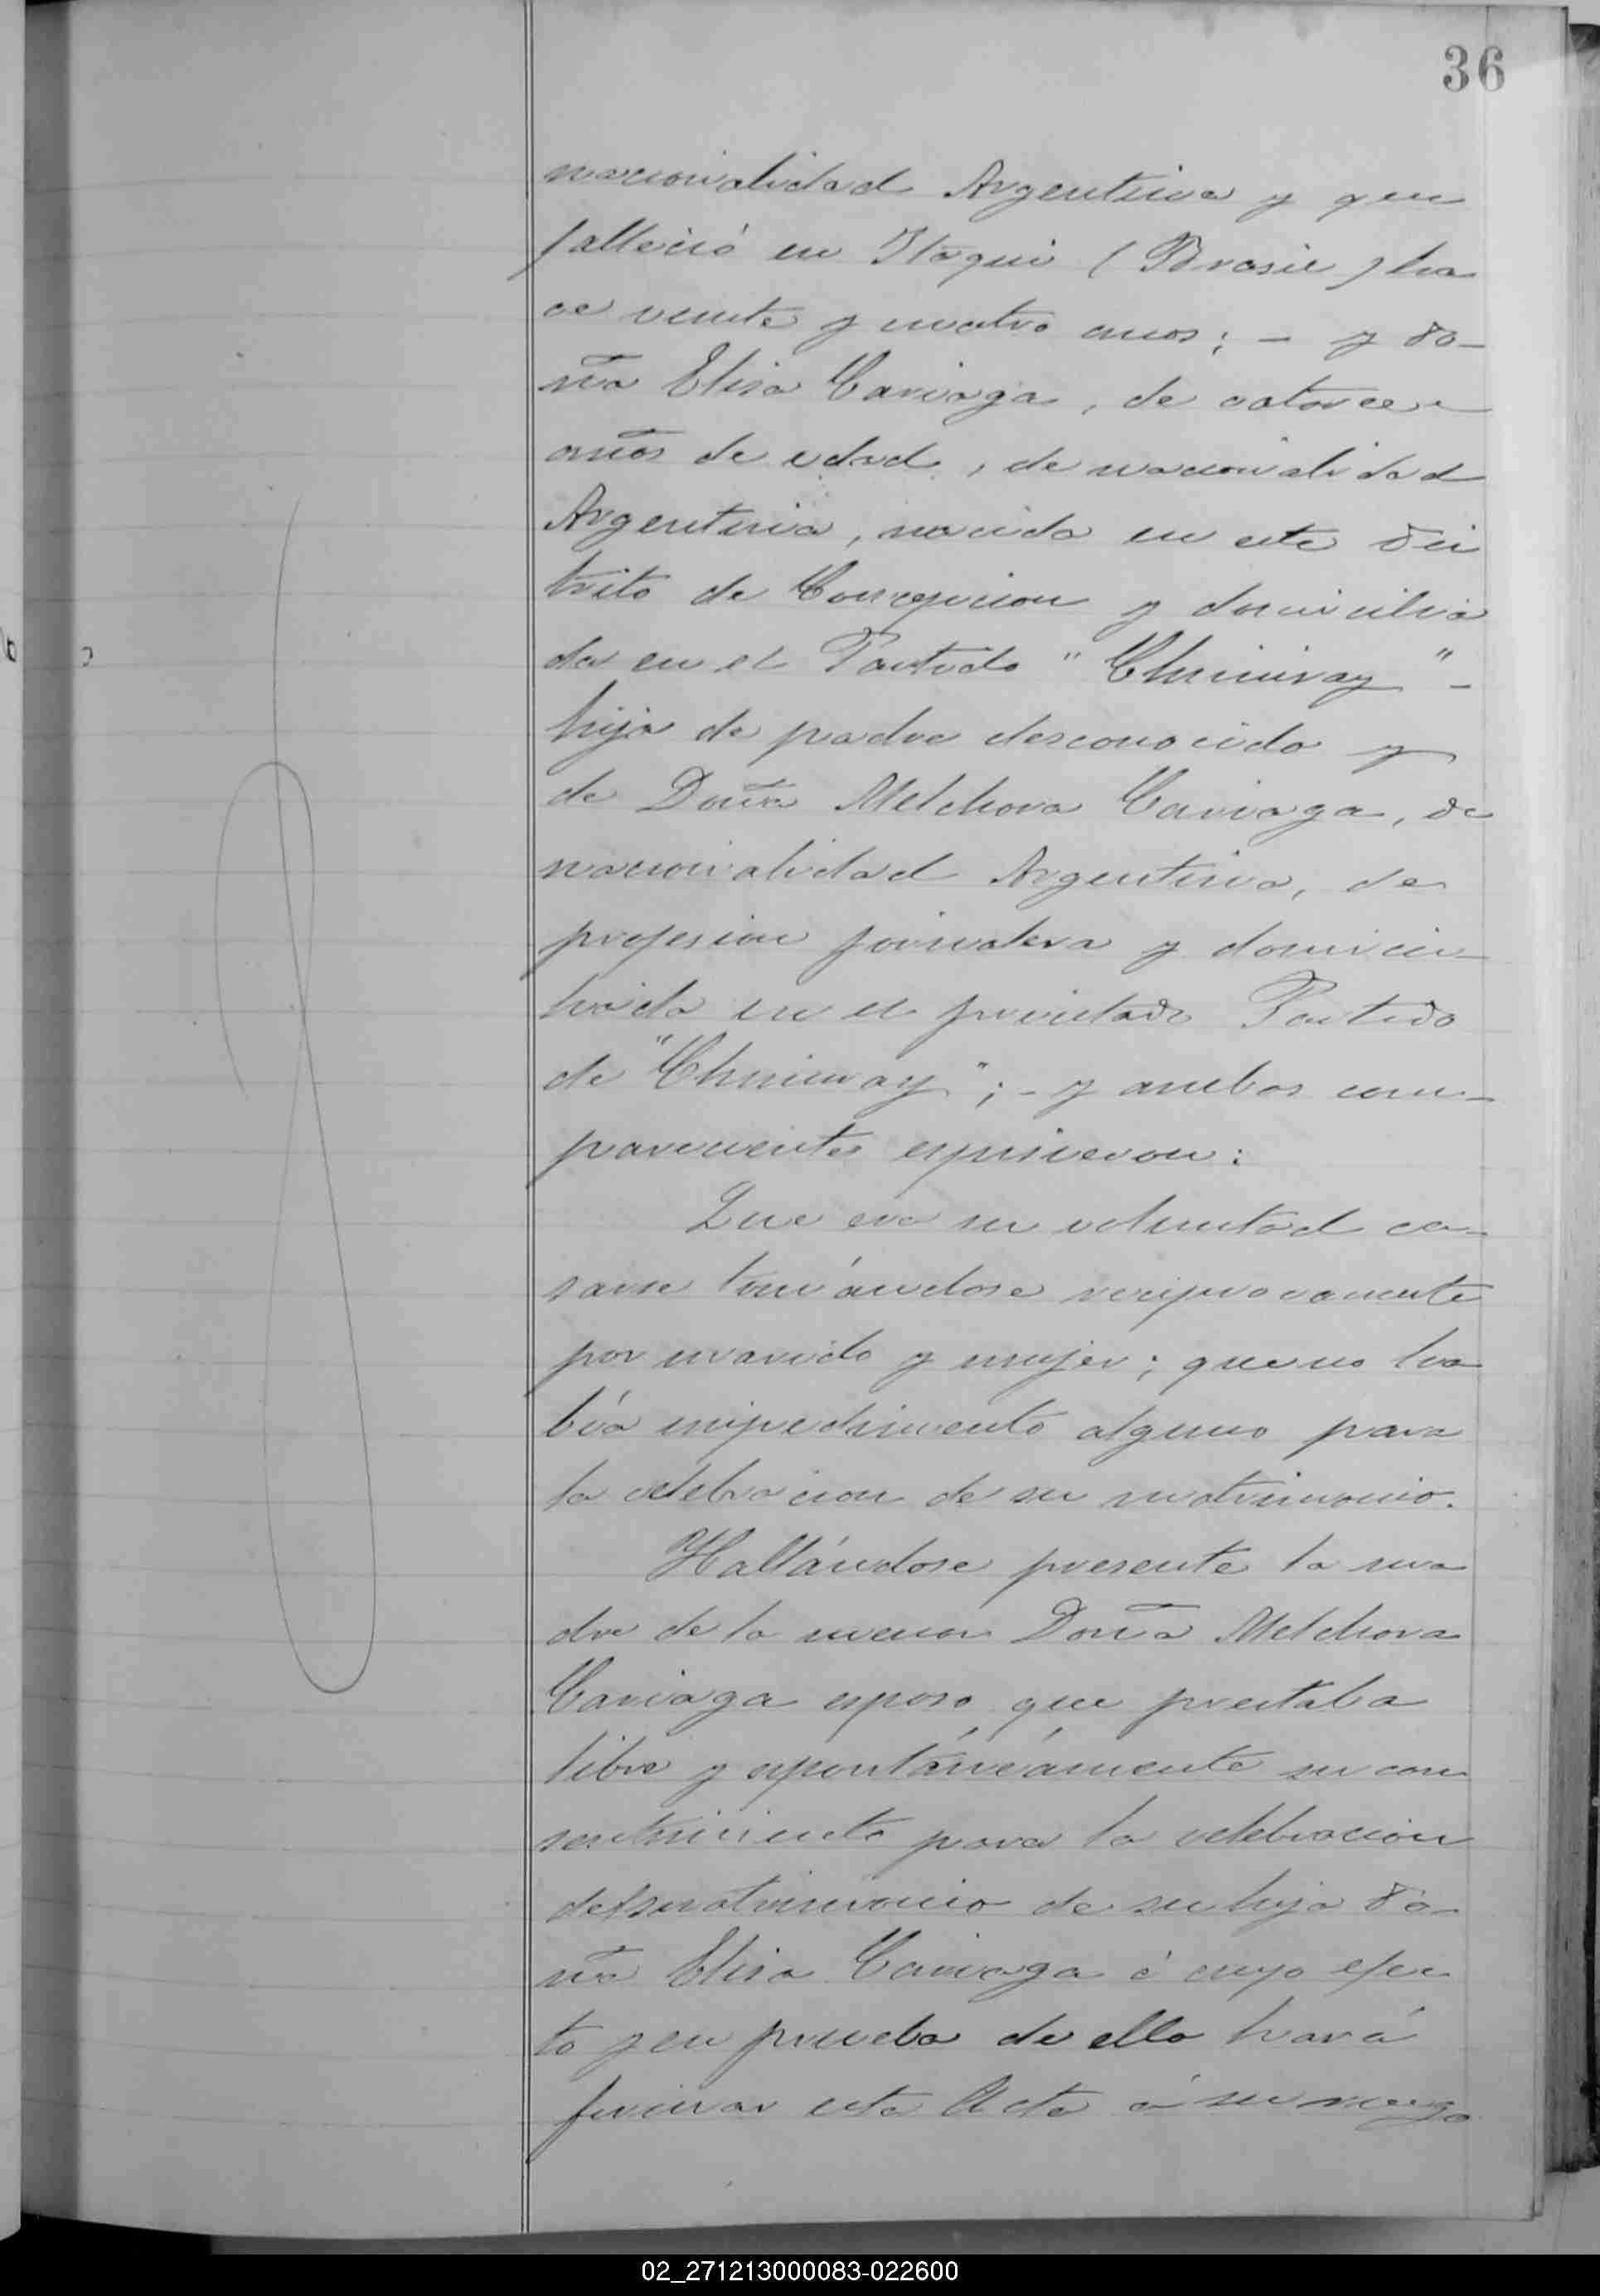 36
nacionalidad Argentina y que
falleció en Itaqui (Brasil) ha
ce veinte y cuatro años; – y do–
ña Elisa Cariaga, de catorce
años de edad, de nacionalidad
Argentina, nacida en este dis
trito de Concepcion y domicilia
da en el Partido "Chiciray" –
hija de padre desconocido y
de Doña Melchora Cariaga, de
nacionalidad Argentina, de
profesion jornalera y domici–
liada en el precitado Partido
de "Chiciray"; – y ambos com–
parecientes espusieron:
Que era su voluntad ca–
sarse tomándose reciprocamente
por marido y mujer; que no ha
bía impedimento alguno para
la celebracion de su matrimonio.
Hallándose presente la ma
dre de la menor Doña Melchora
Cariaga espuso que prestaba
libre y espontáneamente su con
sentimiento para la celebracion
del matrimonio de su hija do–
ña Elisa Cariaga á cuyo efec
to y en prueba de ello hará
firmar esta Acta á su ruego
02_271213000083-022600